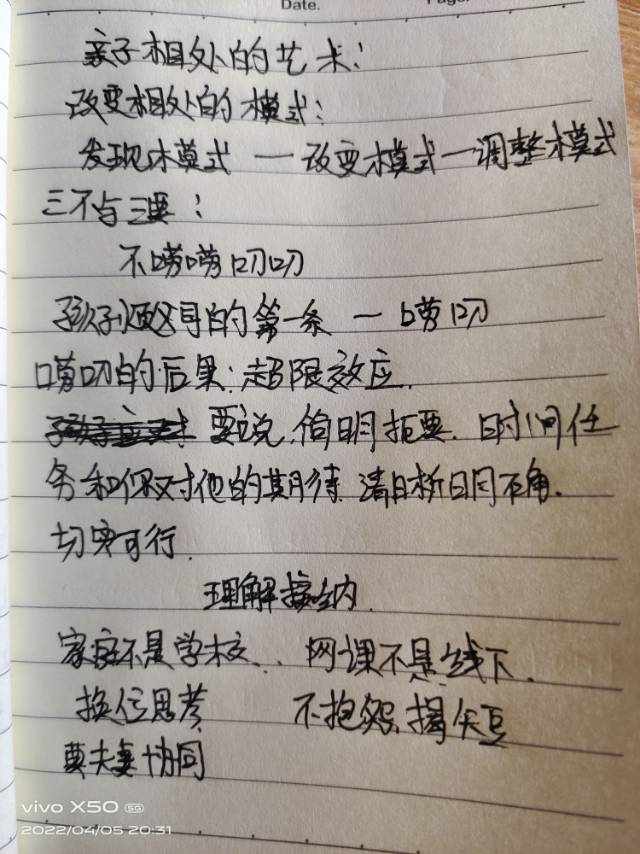 Date.
亲子相处的艺术:
改变相处的模式:
发现模式 — 改变模式 — 调整模式
三不与三要:
不唠唠叨叨
孩子烦父母的第一条 — 唠叨
唠叨的后果:超限效应.
要说,简明扼要.时间任
务和你对他的期待 清晰明确.
切实可行.
理解接纳.
家庭不是学校... 网课不是线下.
换位思考 不抱怨,揭失豆
要夫妻协同
vivo X50 5G
2022/04/05 20:31